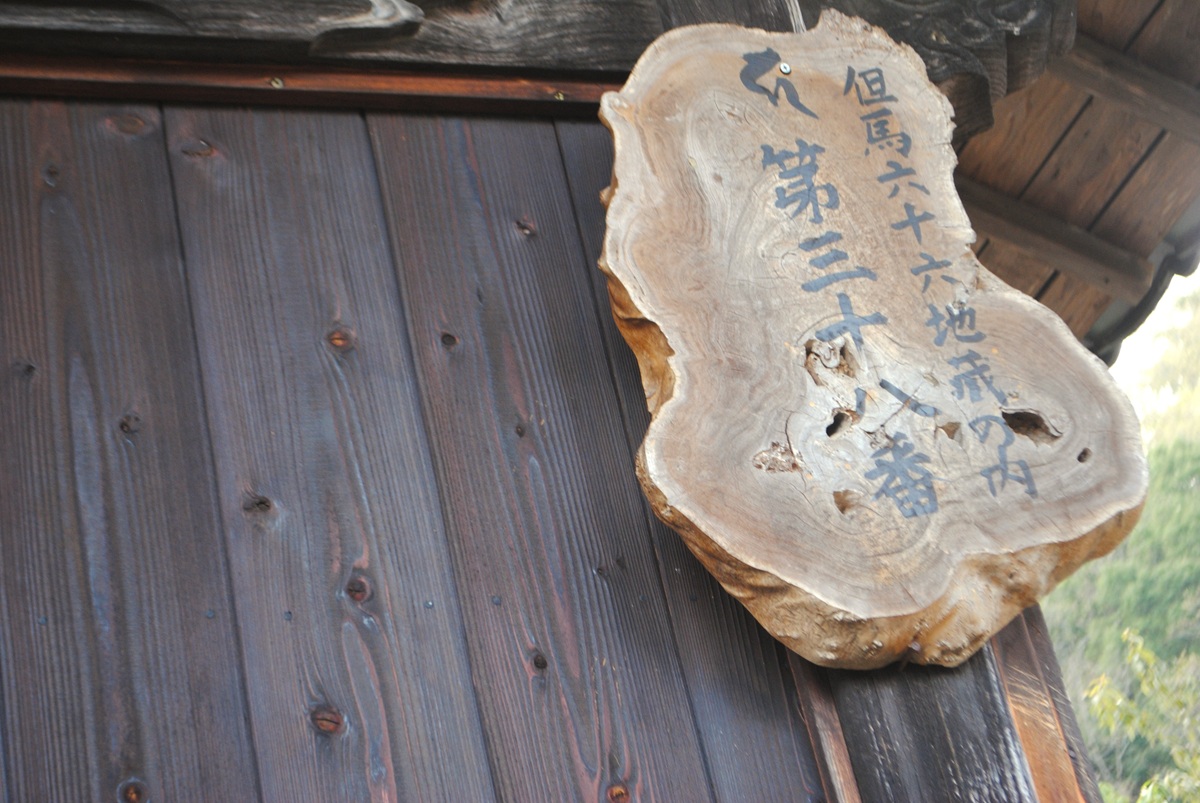 但馬六十六地蔵の内
第三十八番